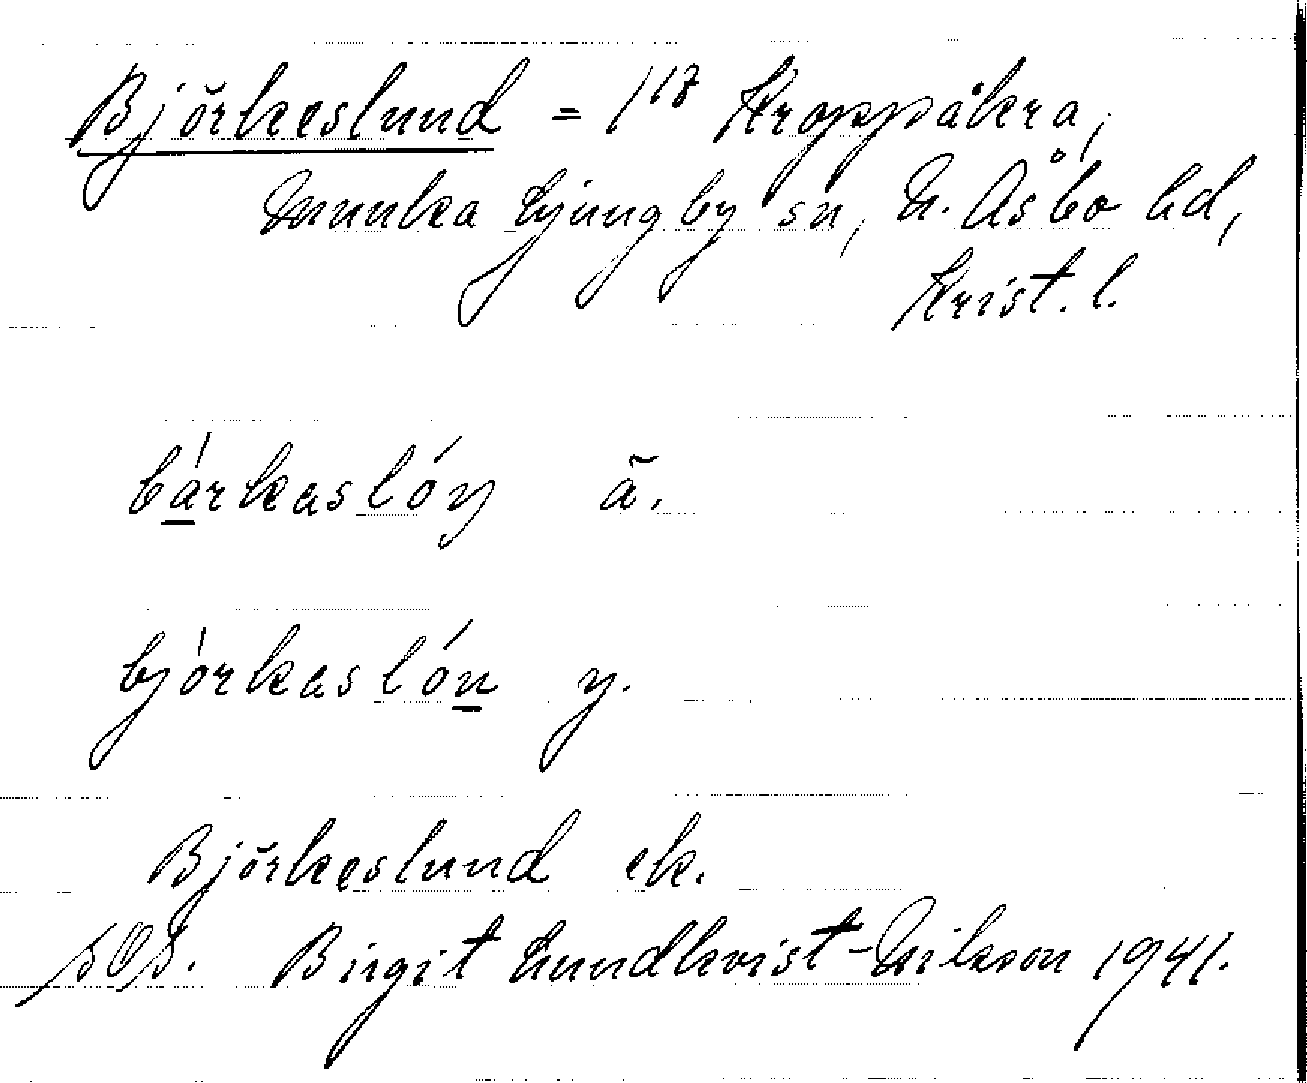 Björkeslund = 1¹⁸ Kroppåkra,
Munka Ljungby sn, N. Åsbo hd,
Krist. l.
bárkaslóŋ ä.
bjórkaslón y.
Björkeslund ek.
SOS. Birgit Lundkvist-Nilsson 1941.